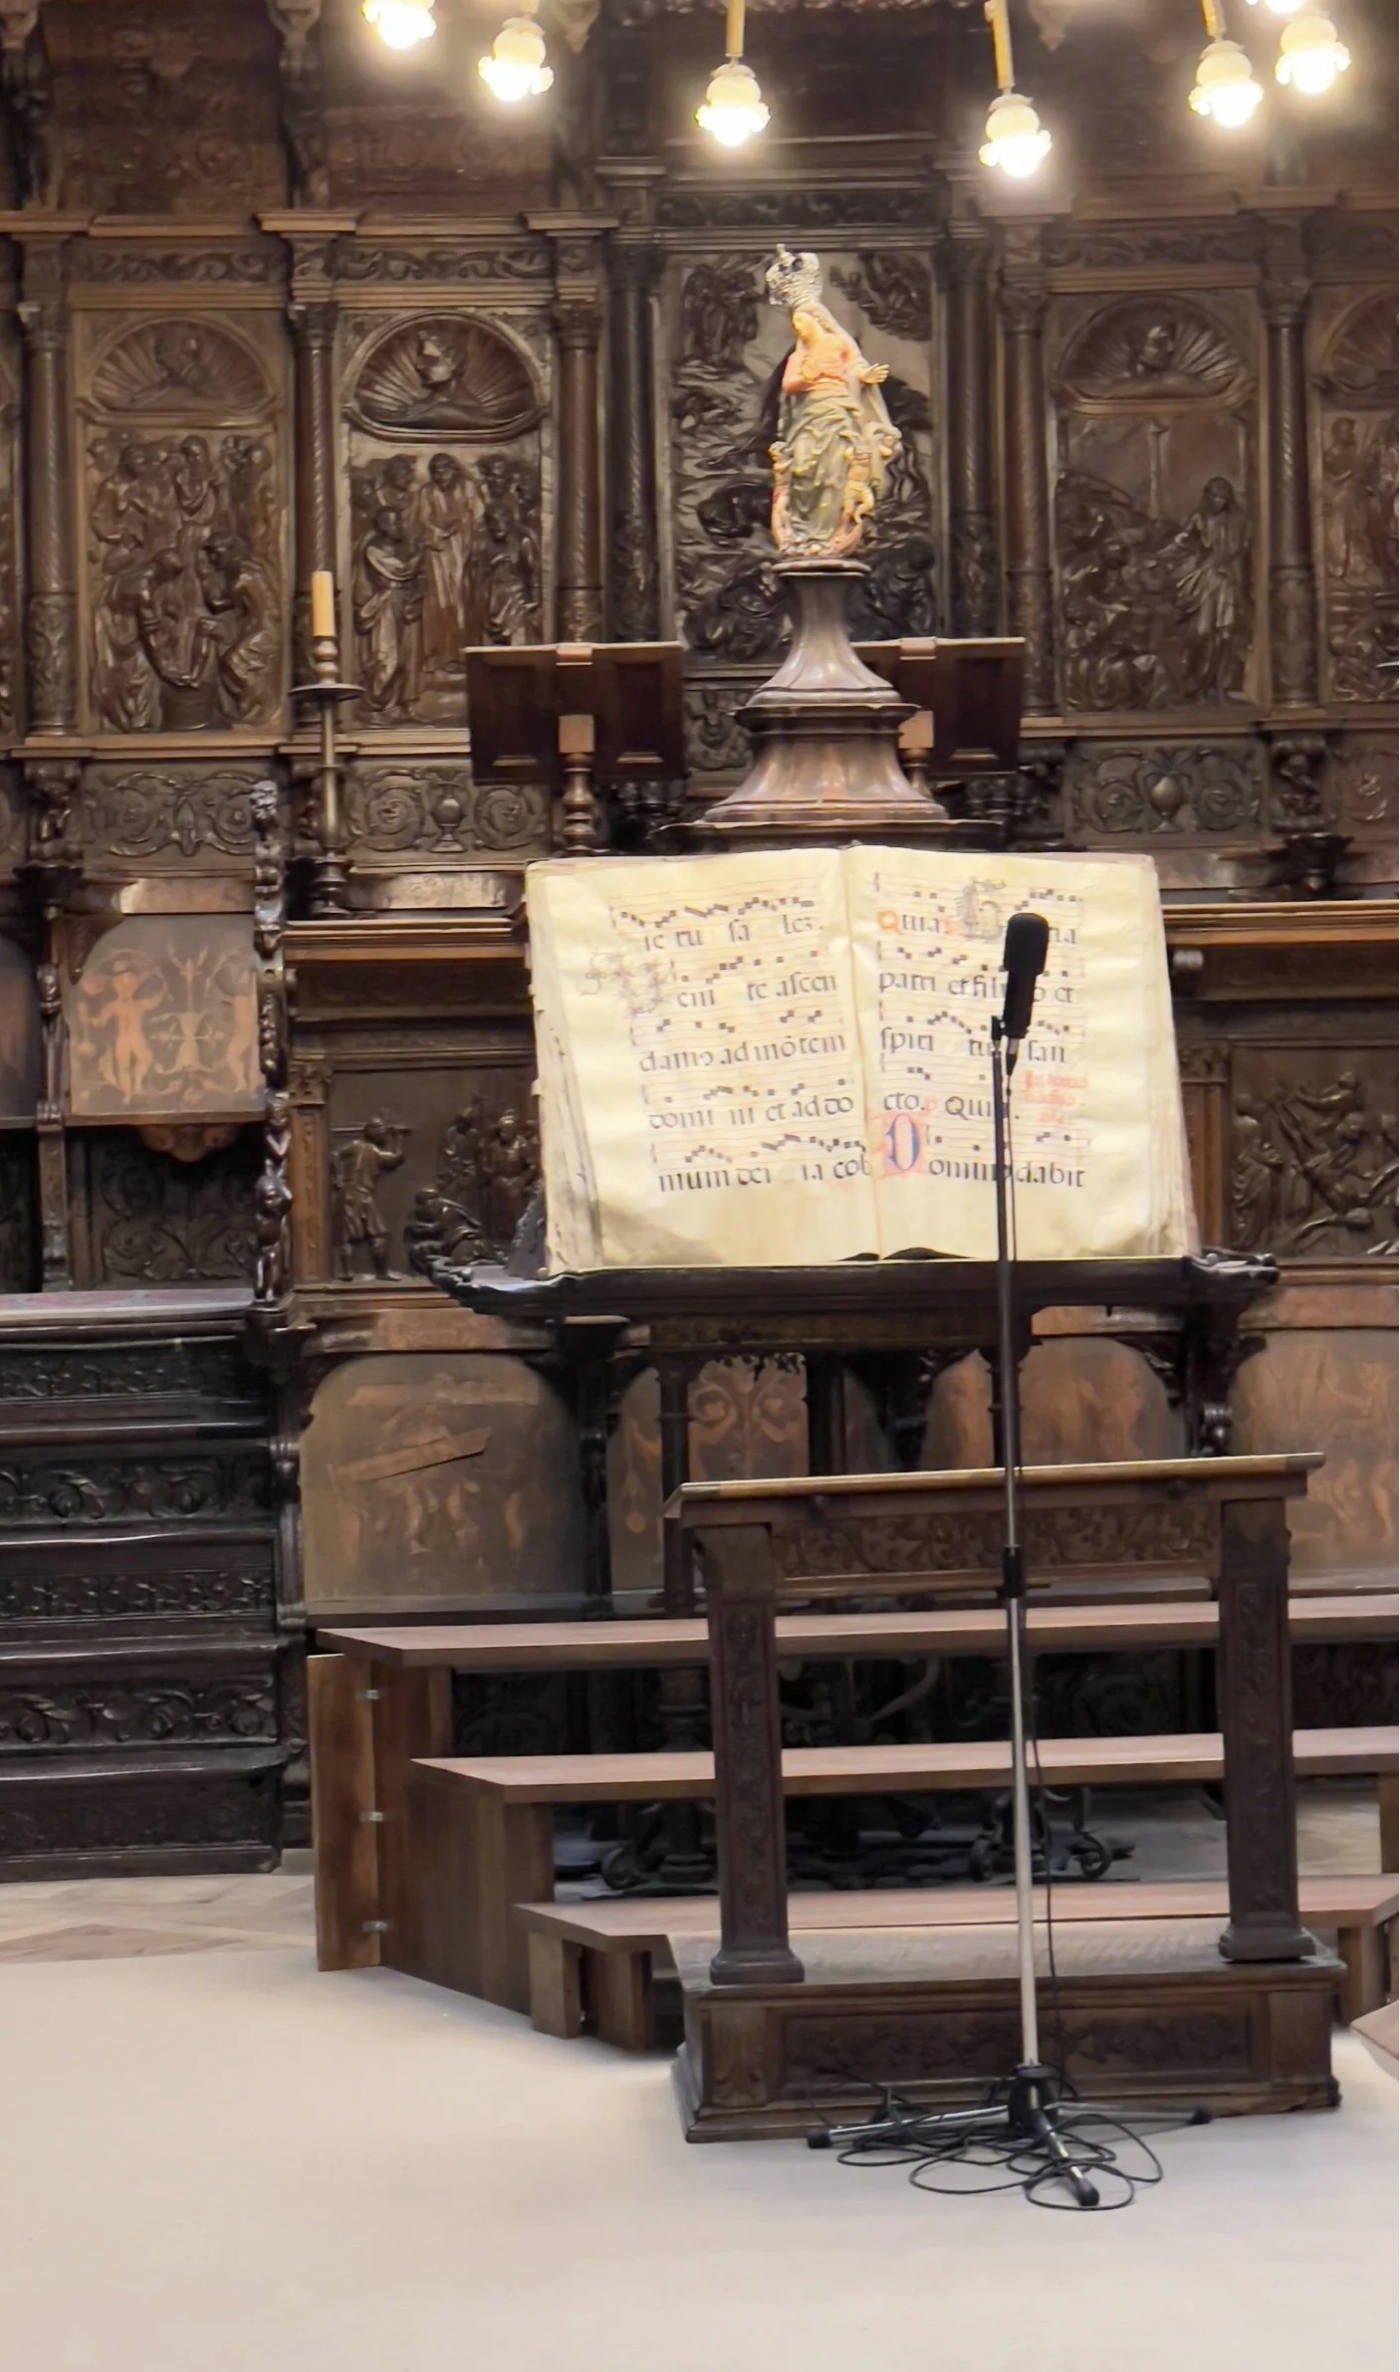 ie ru sa lez.
eni te ascen
damꝰ ad mōtem
domi ni et ad do
mum dei ia cob
Quia
patri et fili o et
spiri tui san
cto. Quia.
Domin dabit